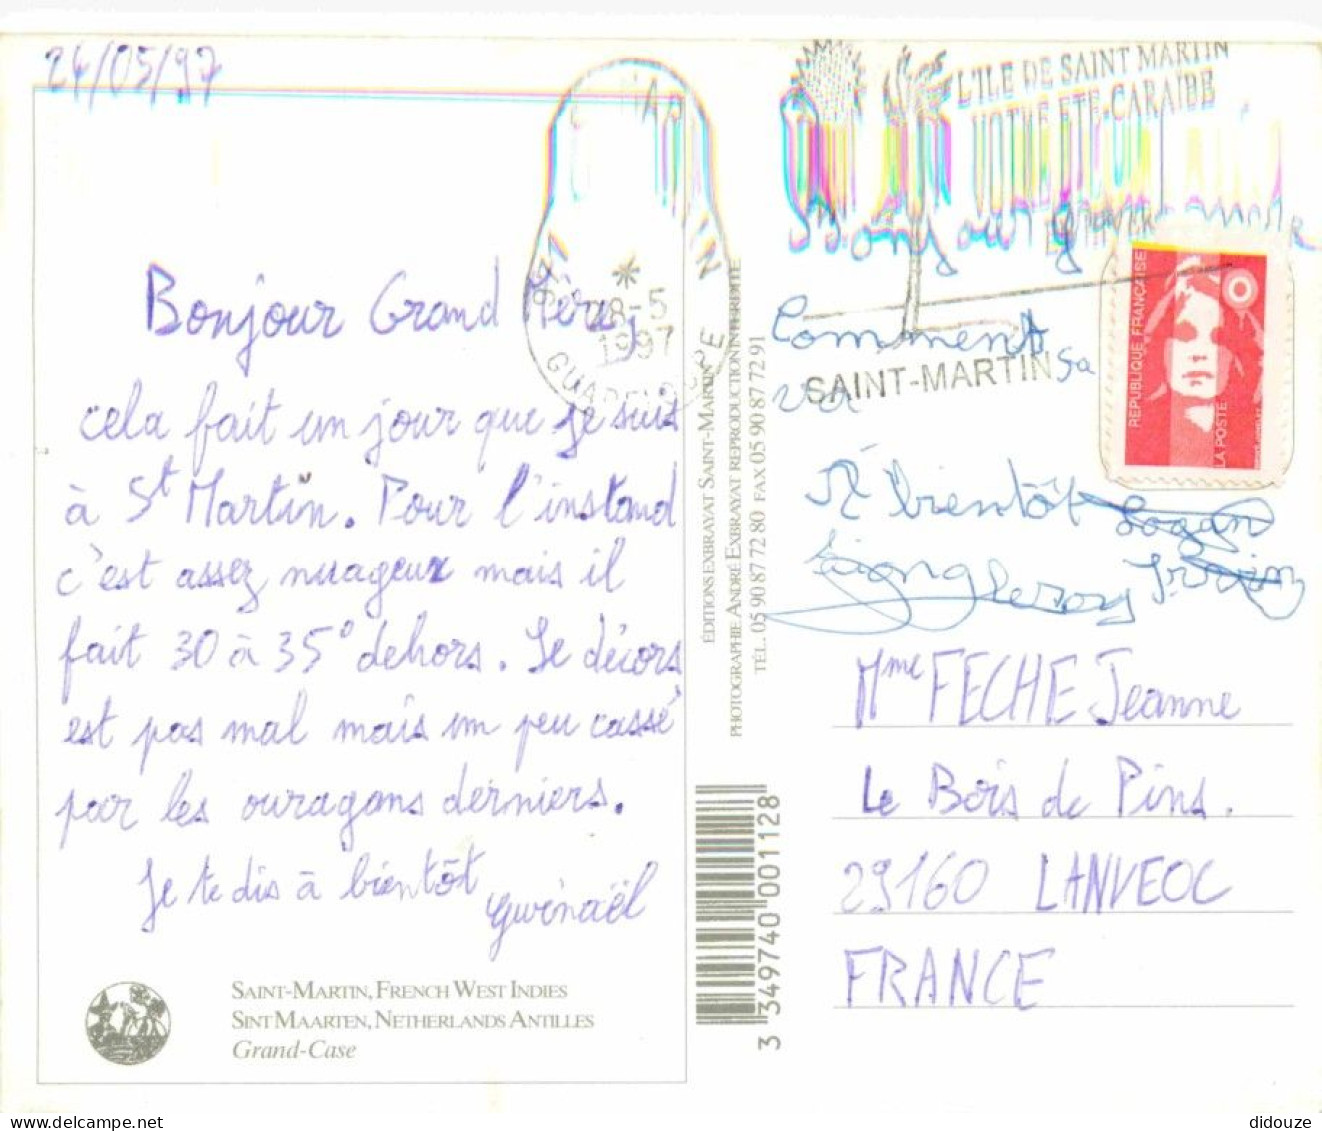 24/05/97
Bonjour Grand Mère,
cela fait un jour que je suis
à St Martin. Pour l'instand
c'est assez nuageux mais il
fait 30 à 35° dehors. Le décors
est pas mal mais un peu cassé
par les ouragans derniers.
Je te dis à bientôt
Gwénaël
SAINT-MARTIN, FRENCH WEST INDIES
SINT MAARTEN, NETHERLANDS ANTILLES
Grand-Case
28-5
1997
GUADELOUPE
ÉDITIONS EXBRAYAT SAINT-MARTIN
PHOTOGRAPHIE ANDRÉ EXBRAYAT REPRODUCTION INTERDITE
TÉL. 05 90 87 72 80 FAX 05 90 87 72 91
3 349740 001128
L'ILE DE SAINT MARTIN
VOTRE ETE CARAIBE
SAINT-MARTIN
REPUBLIQUE FRANÇAISE
LA POSTE
Bonjour
Comment sa
va
A bientôt
Mme FECHE Jeanne
Le Bois de Pins.
29160 LANVEOC
FRANCE